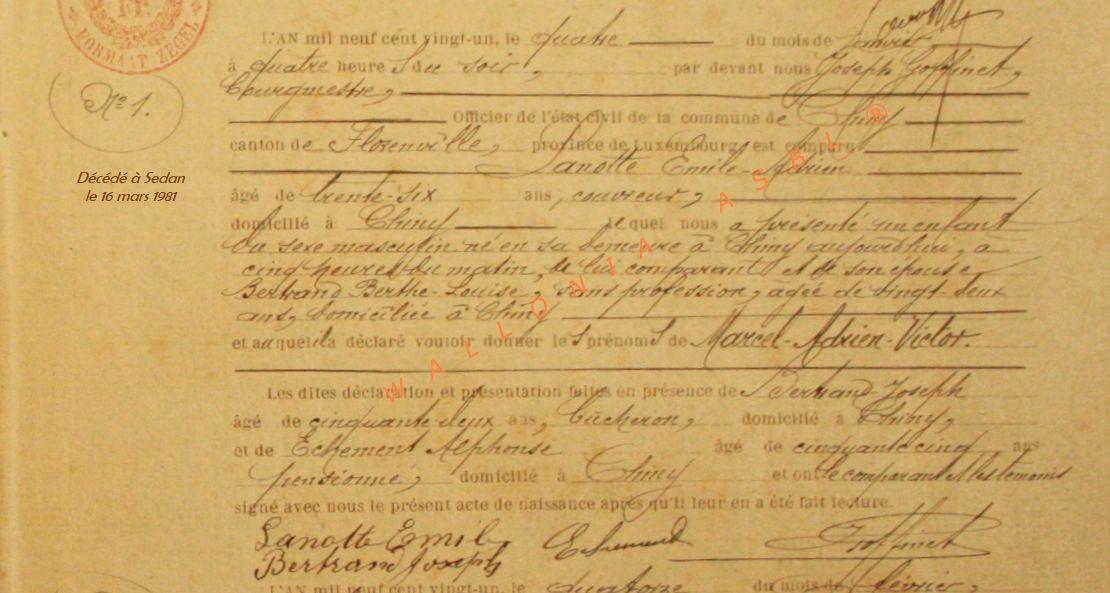 FORMAAT ZEGEL
L'AN mil neuf cent vingt-un, le quatre du mois de Janvier
à quatre heure s du soir, par devant nous Joseph Goffinet,
Bourgmestre,
Officier de l'état civil de la commune de Chiny
No 1.
canton de Florenville, province de Luxembourg, est comparu
Lanotte Emile-Adrien
Décédé à Sedan
le 16 mars 1981
âgé de trente-six ans, couvreur,
domicilié à Chiny lequel nous a présenté un enfant
du sexe masculin né en sa demeure à Chiny aujourd'hui, à
cinq heures du matin, de lui comparant et de son épouse
Bertrand Berthe-Louise, sans profession, âgée de vingt-deux
ans, domiciliée à Chiny
et auquel il a déclaré vouloir donner les prénoms de Marcel-Adrien-Victor.
WALLONIA ASBL ®
Les dites déclaration et présentation faites en présence de Bertrand Joseph
âgé de cinquante deux ans, bûcheron, domicilié à Chiny,
et de Echement Alphonse âgé de cinquante cinq ans
pensionné, domicilié à Chiny et ont le comparant et les témoins
signé avec nous le présent acte de naissance après qu'il leur en a été fait lecture.
Lanotte Emile Echement Goffinet
Bertrand Joseph
L'AN mil neuf cent vingt-un, le quatorze du mois de février,